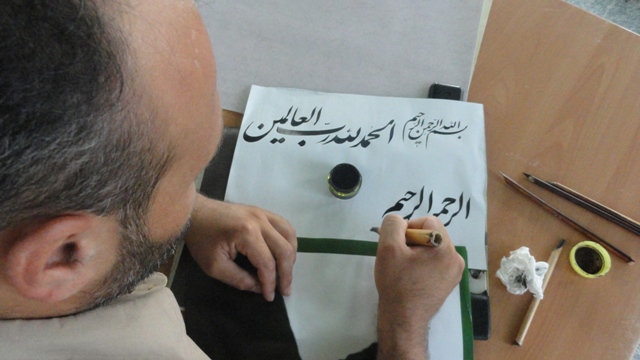 بسم الله الرحمن الرحیم
الحمد لله رب العالمین
الرحمن الرحیم